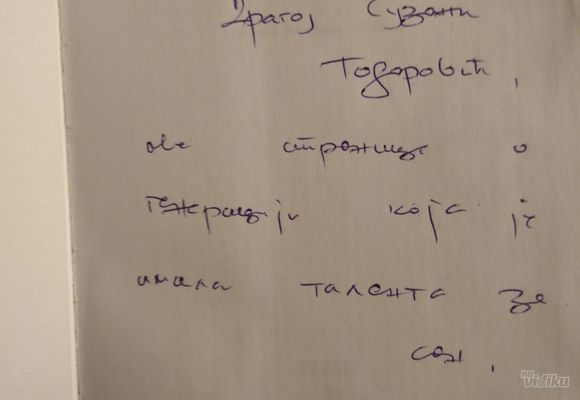 Драгој Сузани
Тодоровић,
ове странице о
генерацији која је
имала талента за
сан,
на
Vidiku